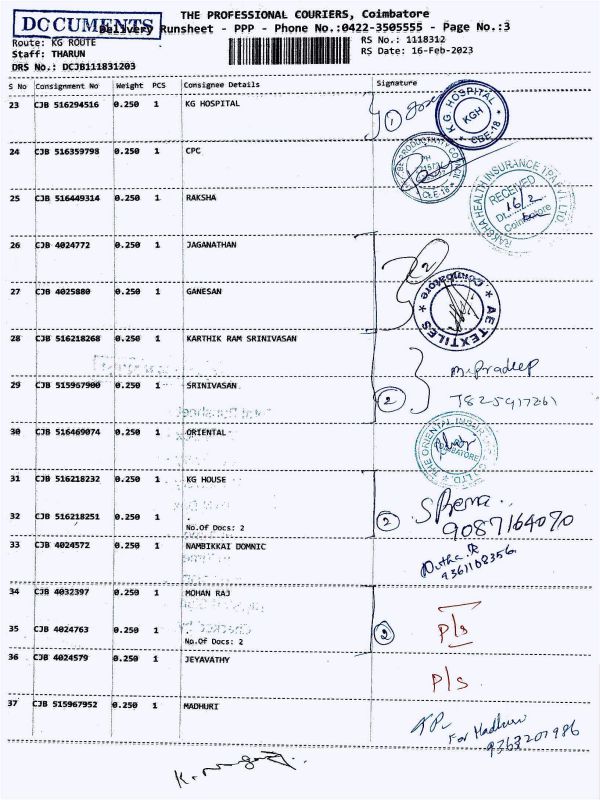 DOCUMENTS
THE PROFESSIONAL COURIERS, Coimbatore
Delivery Runsheet - PPP - Phone No.:0422-3505555 - Page No.:3
Route: KG ROUTE
RS No.: 1118312
Staff: THARUN
RS Date: 16-Feb-2023
DRS No.: DCJB111831203
S No Consignment No Weight PCS Consignee Details Signature
23 CJB 516294516 0.250 1 KG HOSPITAL
1
KG HOSPITAL KGH * CBE-18 *
24 CJB 516359798 0.250 1 CPC
PRODUCTIVITY COUNCIL
25 CJB 516449314 0.250 1 RAKSHA
RAKSHA HEALTH INSURANCE TPA PVT LTD
RECEIVED
16/2
Coimbatore
26 CJB 4024772 0.250 1 JAGANATHAN
2
27 CJB 4025880 0.250 1 GANESAN
* AE TEXTILES * Coimbatore
28 CJB 516218268 0.250 1 KARTHIK RAM SRINIVASAN
M.Pradeep
29 CJB 515967900 0.250 1 SRINIVASAN
2
7825917261
30 CJB 516469074 0.250 1 ORIENTAL
* THE ORIENTAL INSURANCE CO LTD. * COIMBATORE
31 CJB 516218232 0.250 1 KG HOUSE
32 CJB 516218251 0.250 1 No.Of Docs: 2
2
9087164070
33 CJB 4024572 0.250 1 NAMBIKKAI DOMNIC
9361108356
34 CJB 4032397 0.250 1 MOHAN RAJ
35 CJB 4024763 0.250 1 No.Of Docs: 2
2
P/s
36 CJB 4024579 0.250 1 JEYAVATHY
P/s.
37 CJB 515967952 0.250 1 MADHURI
For Madhuri
9363207986